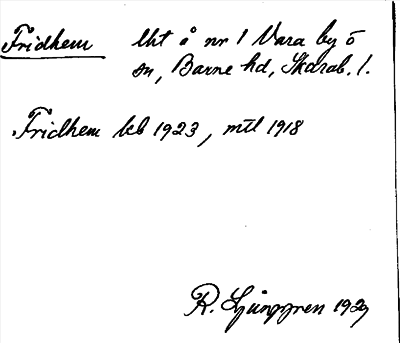 Fridhem lht å nr 1 Vara by o
sn, Barne hd, Skarab. l.
Fridhem kb 1923, mtl 1918
R. Ljunggren 1929